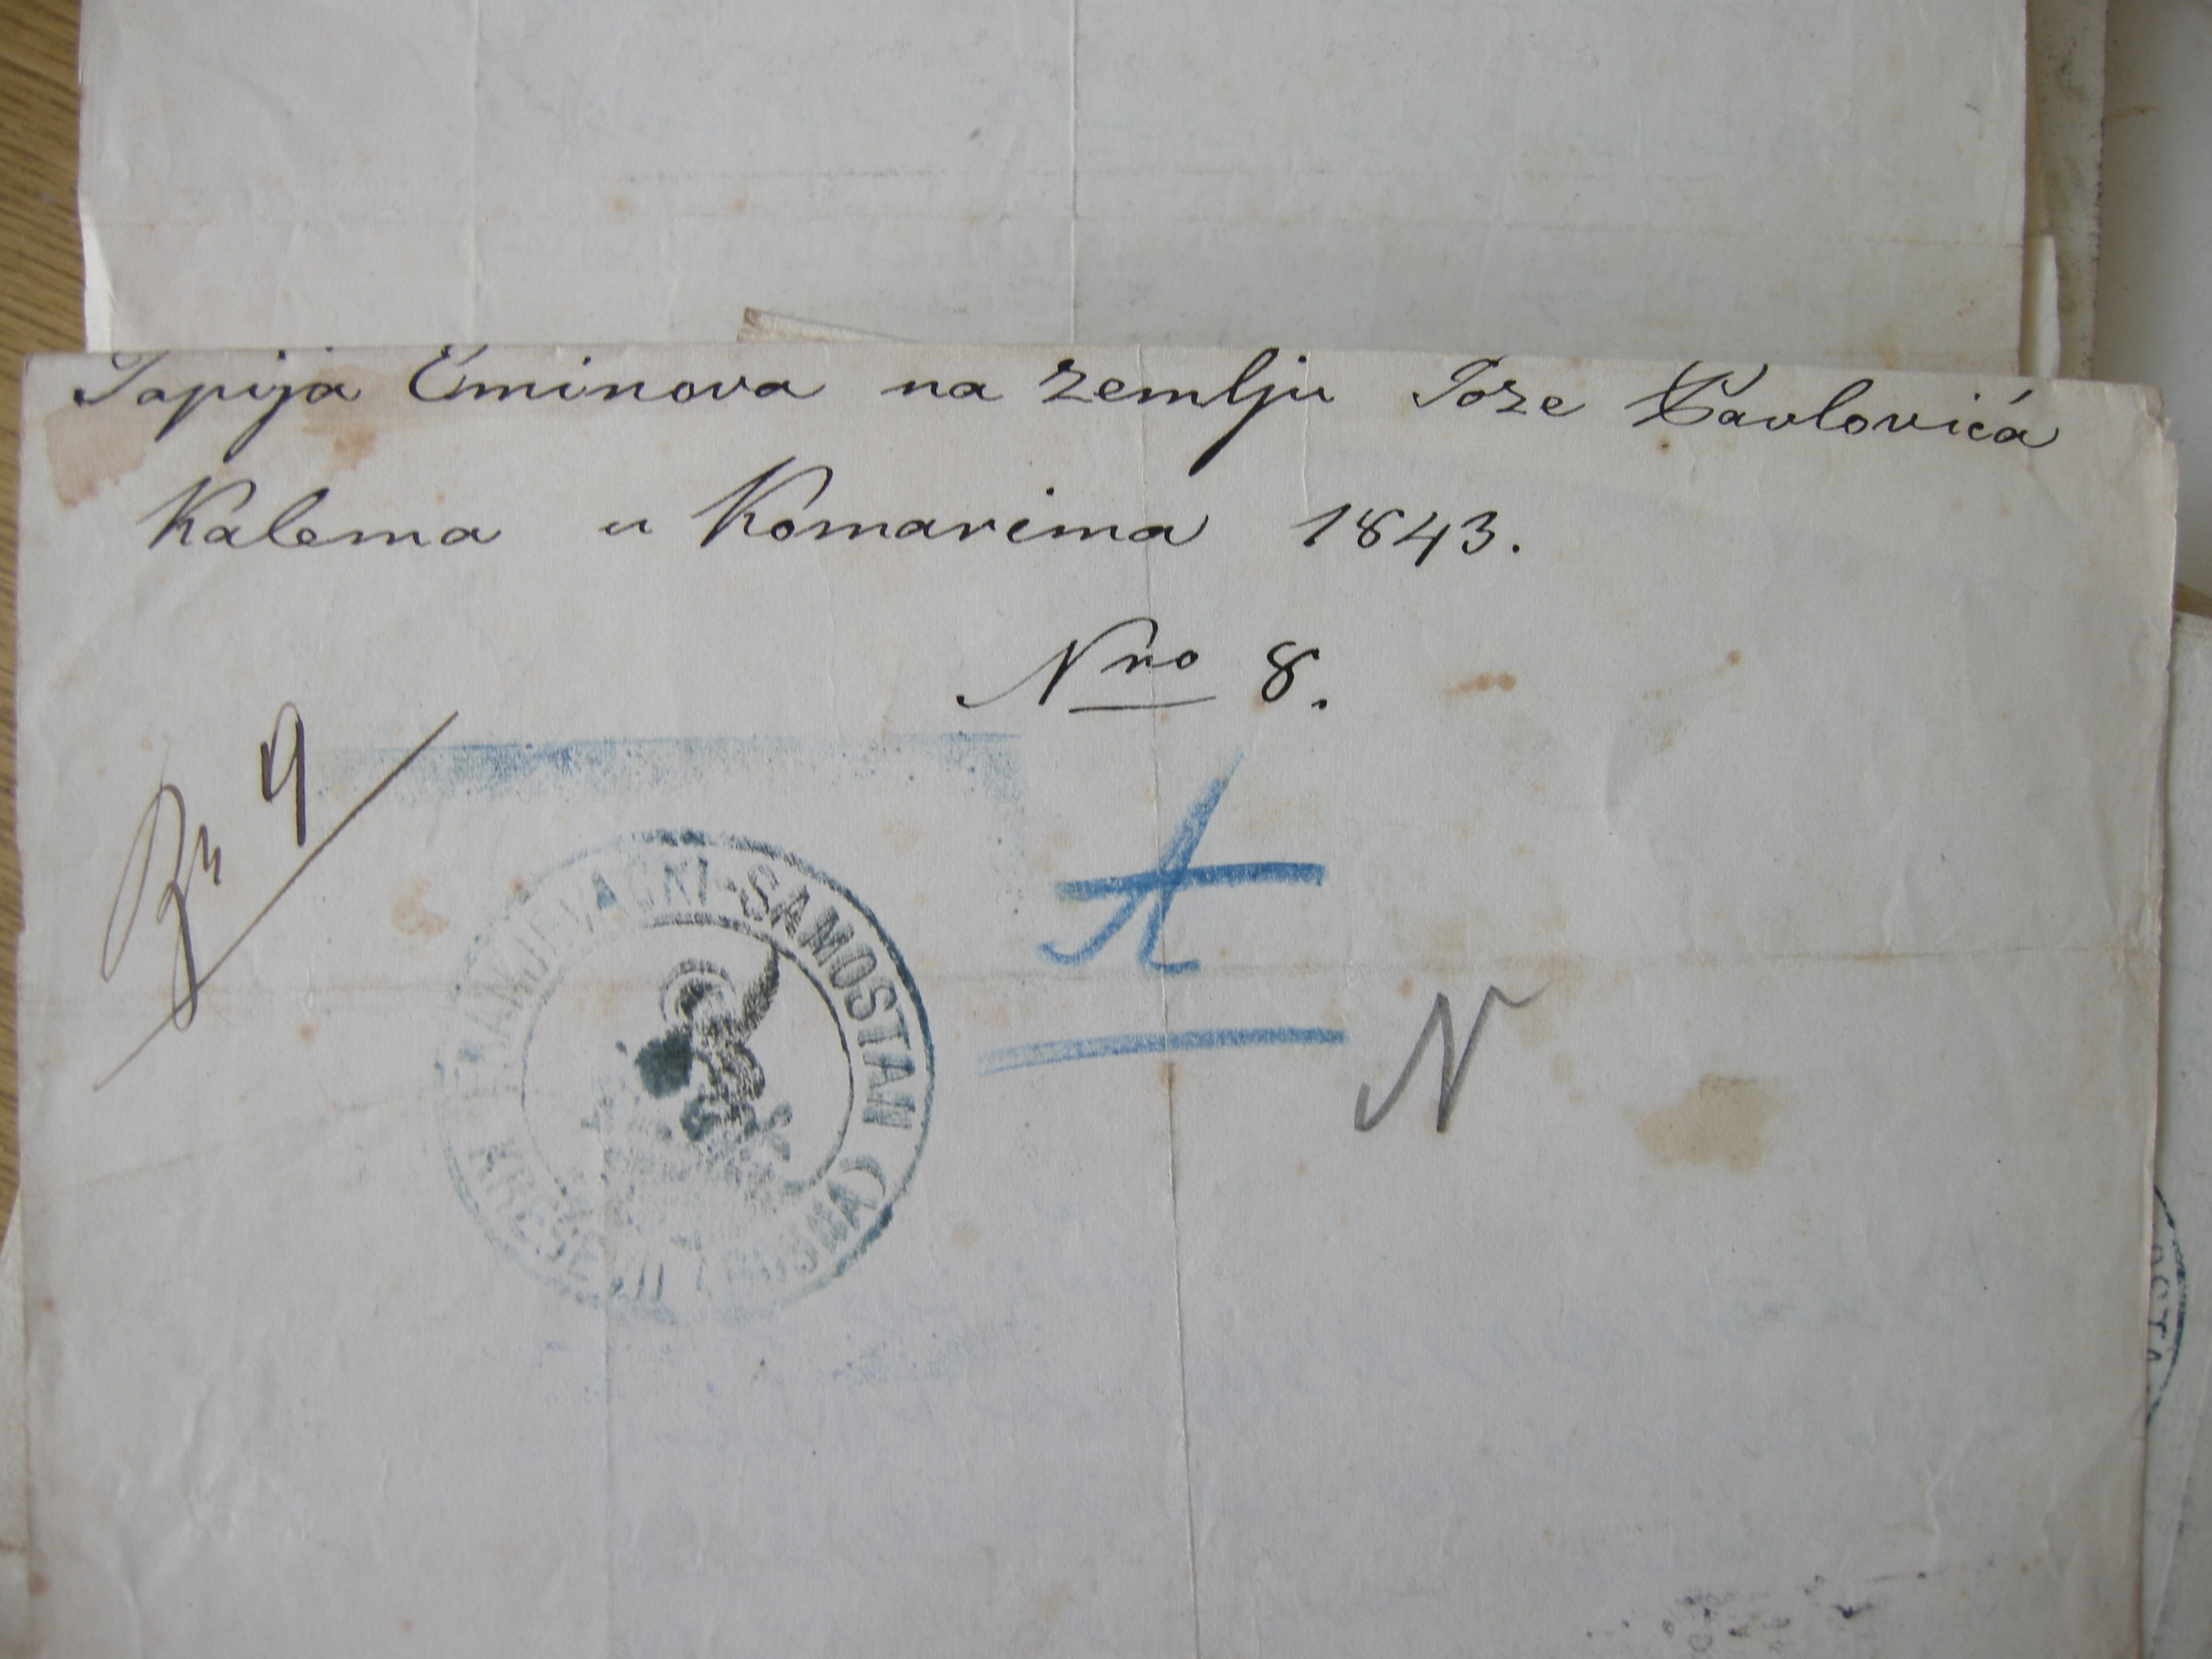 Tapija Eminova na zemlju Joze Pavlovića
Kalema u Komarima 1843.
Nro 8.
9
A
N
FRANJEVAČKI SAMOSTAN
KREŠEVU (BOSNA)